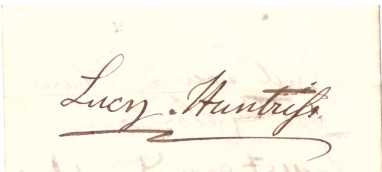 Lucy Huntriſs